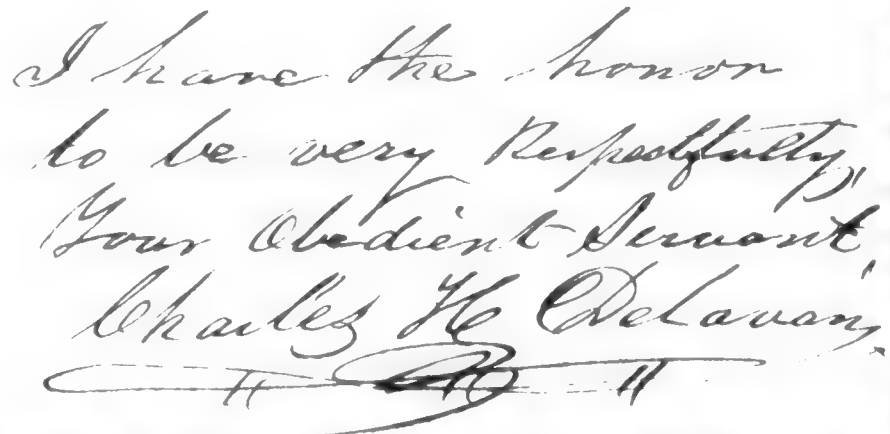 I have the honor
to be very Respectfully,
Your Obedient Servant,
Charles H Delavan,